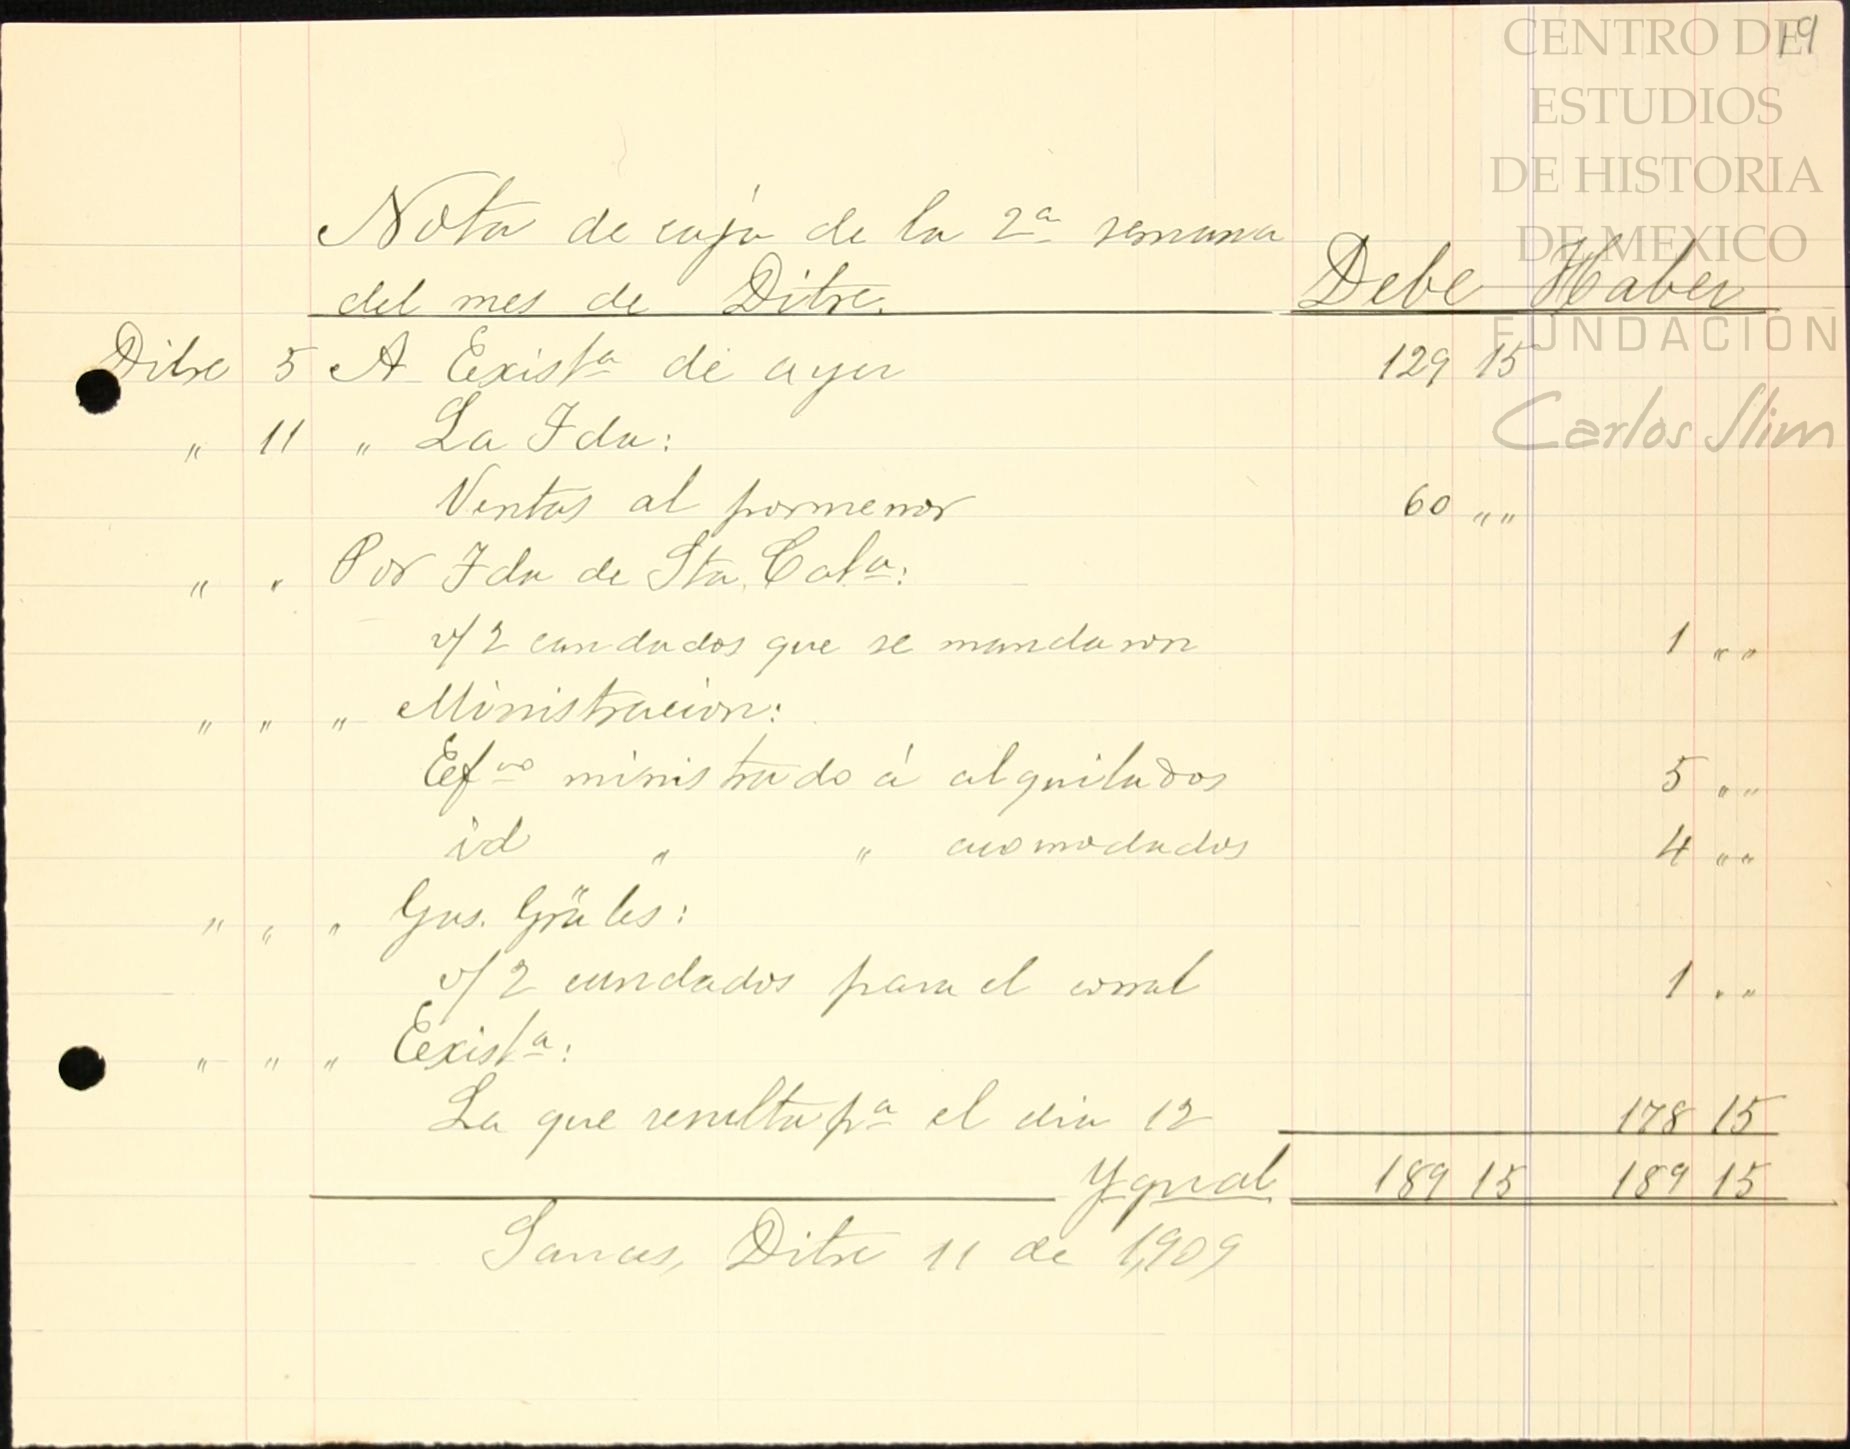 19
CENTRO DE
ESTUDIOS
DE HISTORIA
DE MEXICO
FUNDACIÓN
Carlos Slim
Nota de caja de la 2ª semana
del mes de Ditre. Debe Haber
Ditre 5 A Eexistª de ayer 129 15
" 11 " La Fda:
Ventas al pormenor 60 " "
" " Por Fda de Sta. Catª:
v/ 2 candados que se mandaron 1 " "
" " " Ministracion:
Eefvo ministrado á alquilados 5 " "
id " " acomodados 4 " "
" " " Gas. Gräles:
v/ 2 candados para el corral 1 " "
" " " Eexistª:
La que resulta pª el dia 12 178 15
Ygual 189 15 189 15
Sauces, Ditre 11 de 1,909